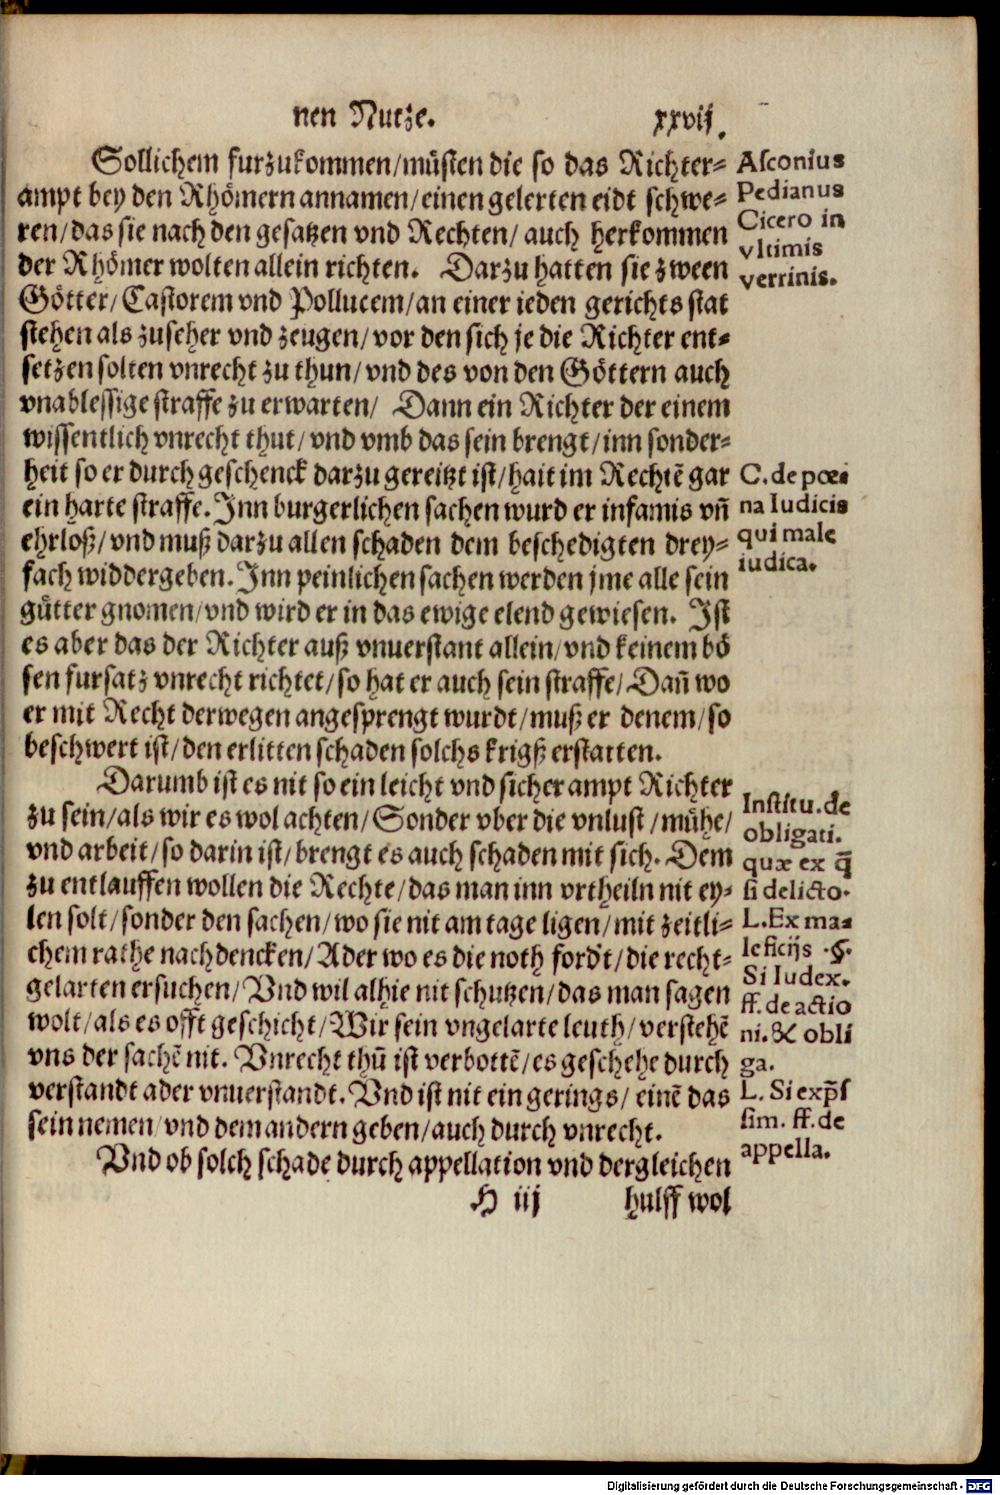 nen Nutze. xxvij.
Sollichem furzukommen/müsten die so das Richter⸗
ampt bey den Rhömern annamen/einen gelerten eidt schwe⸗
ren/das sie nach den gesatzen vnd Rechten/ auch herkommen
der Rhömer wolten allein richten. Darzu hatten sie zween
Götter/Castorem vnd Pollucem/an einer ieden gerichts stat
stehen als zuseher vnd zeugen/vor den sich je die Richter ent⸗
setzen solten vnrecht zu thun/vnd des von den Göttern auch
vnablessige straffe zu erwarten/ Dann ein Richter der einem
wissentlich vnrecht thut/vnd vmb das sein brengt/inn sonder⸗
heit so er durch geschenck darzu gereitzt ist/hait im Rechtē gar
ein harte straffe. Inn burgerlichen sachen wurd er infamis vn̄
ehrloß/vnd muß darzu allen schaden dem beschedigten drey⸗
fach widdergeben. Inn peinlichen sachen werden jme alle sein
gütter gnomen/vnd wird er in das ewige elend gewiesen. Ist
es aber das der Richter auß vnuerstant allein/vnd keinem bö
sen fursatz vnrecht richtet/so hat er auch sein straffe/Dan̄ wo
er mit Recht derwegen angesprengt wurdt/muß er denem/so
beschwert ist/den erlitten schaden solchs krigß erstatten.
Darumb ist es nit so ein leicht vnd sicher ampt Richter
zu sein/als wir es wol achten/Sonder vber die vnlust/mühe/
vnd arbeit/so darin ist/brengt es auch schaden mit sich. Dem
zu entlauffen wollen die Rechte/das man inn vrtheiln nit ey⸗
len solt/sonder den sachen/wo sie nit am tage ligen/mit zeitli⸗
chem rathe nachdencken/Ader wo es die noth ford't/die recht⸗
gelarten ersuchen/Vnd wil alhie nit schutzen/das man sagen
wolt/als es offt geschicht/Wir sein vngelarte leuth/verstehē
vns der sachē nit. Vnrecht thū ist verbottē/es geschehe durch
verstandt ader vnuerstandt. Vnd ist nit ein gerings/einē das
sein nemen/vnd dem andern geben/auch durch vnrecht.
Vnd ob solch schade durch appellation vnd dergleichen
H iij hulff wol
Asconius
Pedianus
Cicero in
vltimis
verrinis.
C. de pœ⸗
na Iudicis
qui male
iudica.
Institu. de
obligati.
quæ ex q̄
si delicto.
L. Ex ma⸗
leficijs .§.
Si Iudex.
ff. de actio
ni. & obli
ga.
L. Si exp̄s
sim. ff. de
appella.
Digitalisierung gefördert durch die Deutsche Forschungsgemeinschaft - DFG